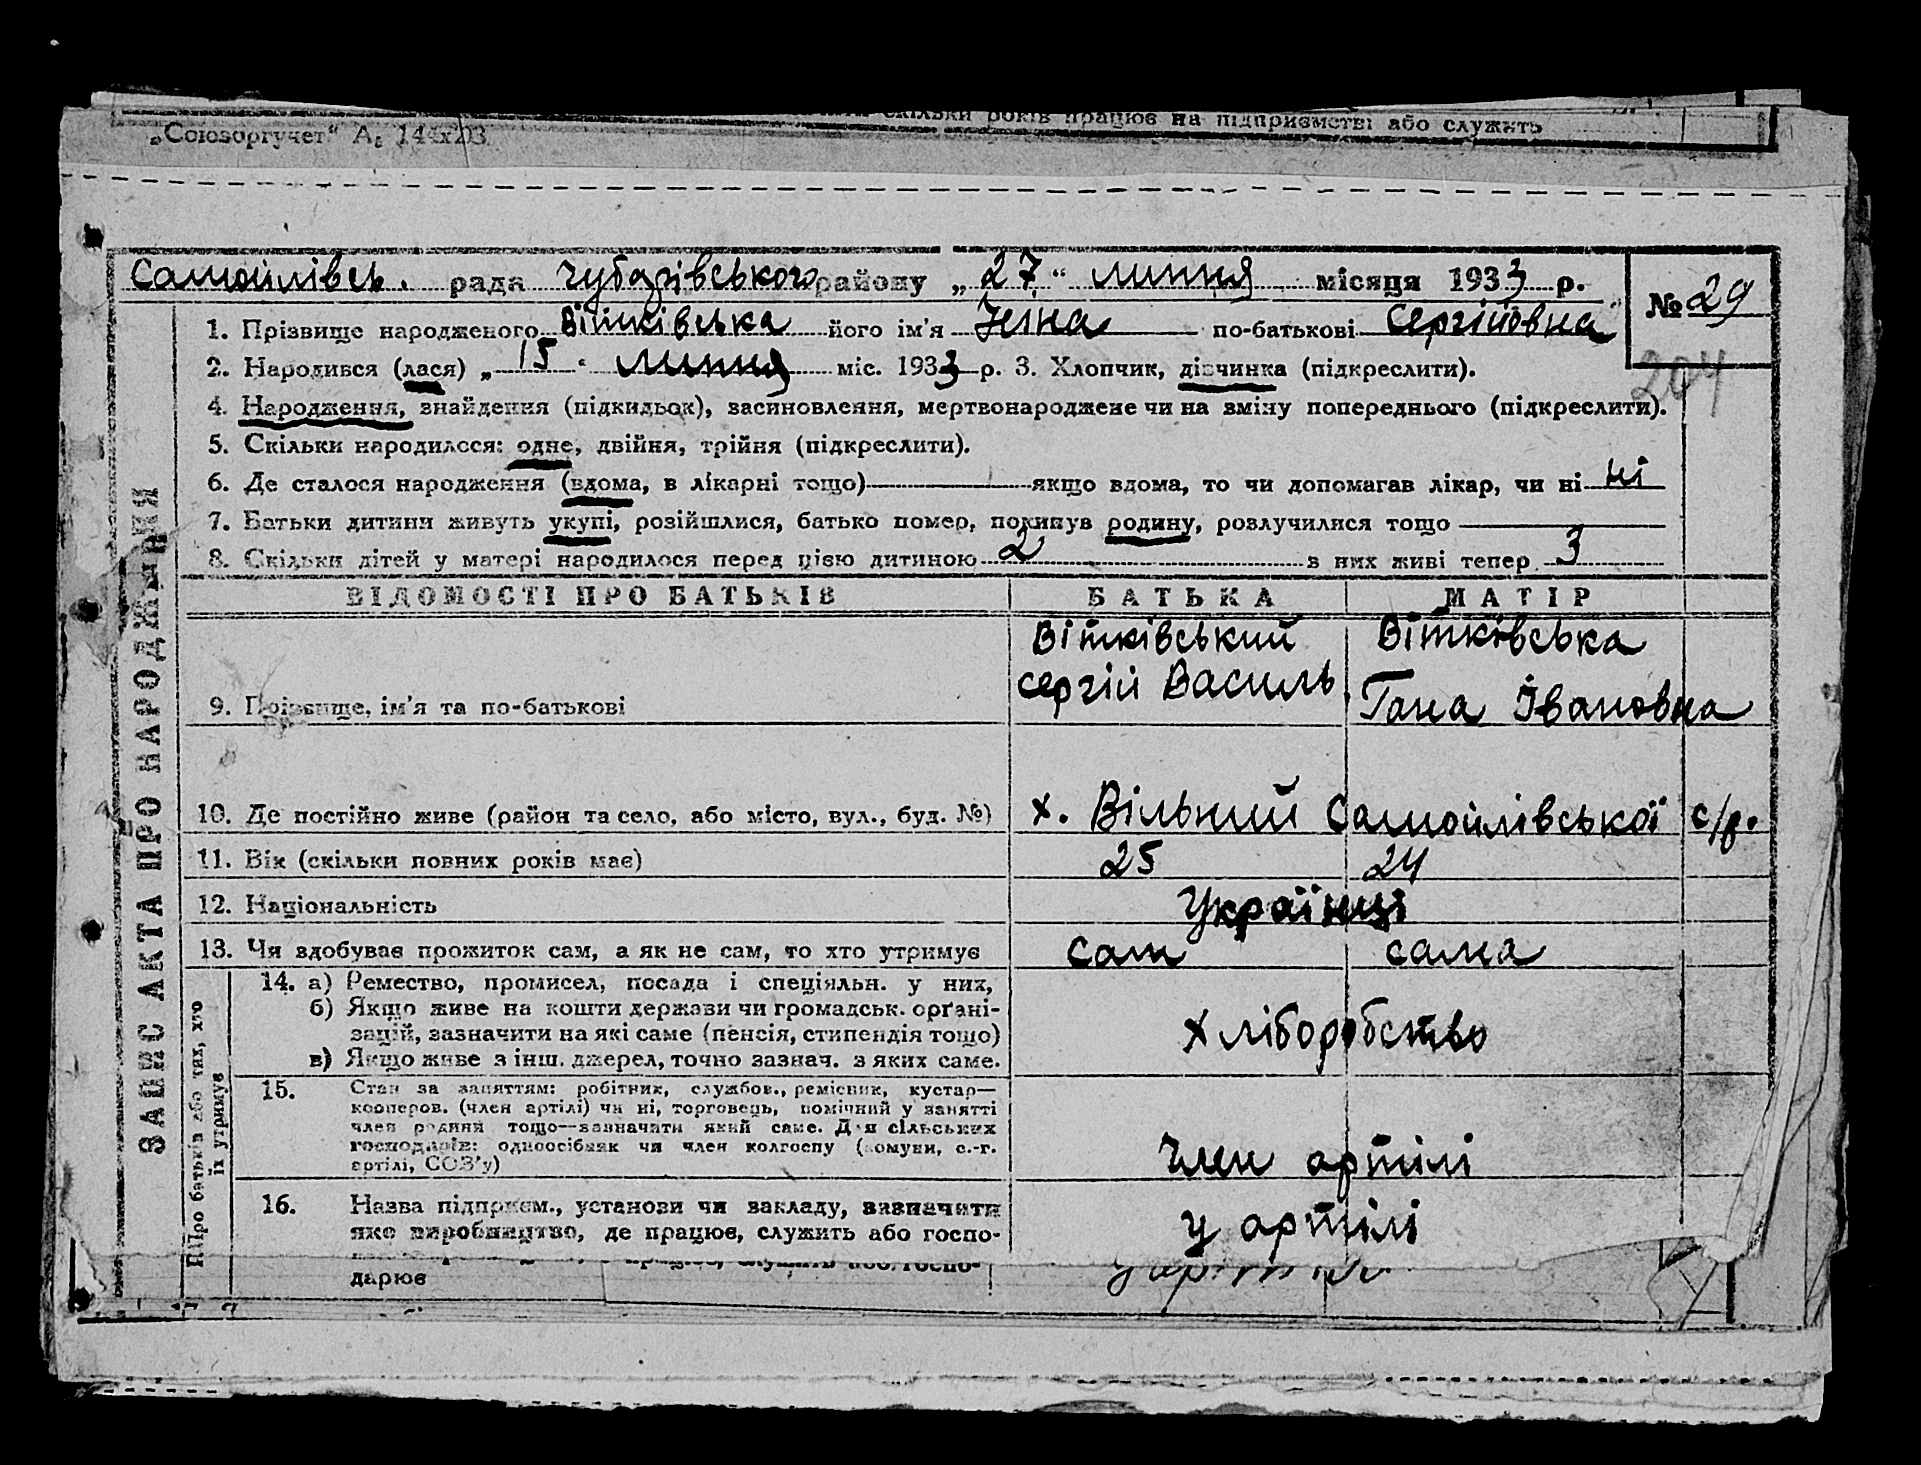 скільки років працює на підприємстві або служить
„Союзоргучет“
Самойлівськ. рада Чубарівського району „27“ липня місяця 1933 р. № 29
1. Прізвище народженого Вітківська його ім’я по-батькові Сергіївна
204
2. Народився (лася) „15“ липня міс. 1933 р. 3. Хлопчик, дівчинка (підкреслити).
4. Народження, знайдення (підкидьок), засиновлення, мертвонароджене чи на зміну попереднього (підкреслити).
5. Скільки народилося: одне, двійня, трійня (підкреслити).
6. Де сталося народження (вдома, в лікарні тощо) якщо вдома, то чи допомагав лікар, чи ні ні
7. Батьки дитини живуть укупі, розійшлися, батько помер, покинув родину, розлучилися тощо
8. Скільки дітей у матері народилося перед цією дитиною 2 з них живі тепер 3
ЗАПИС АКТА ПРО НАРОДЖЕННЯ
ВІДОМОСТІ ПРО БАТЬКІВ БАТЬКА МАТІР
Вітківський Вітківська
Сергій Василь. Гана Івановна
9. Прізвище, ім’я та по-батькові
10. Де постійно живе (район та село, або місто, вул., буд. №) х. Вільний Самойлівської с/р.
11. Вік (скільки повних років має) 25 24
12. Національність Українці
13. Чи здобуває прожиток сам, а як не сам, то хто утримує сам сама
Про батьків або тих, хто
їх утримує
14. а) Ремество, промисел, посада і спеціяльн. у них,
б) Якщо живе на кошти держави чи громадськ. орґані-
зацій, зазначити на які саме (пенсія, стипендія тощо)
в) Якщо живе з інш. джерел, точно зазнач. з яких саме.
хліборобство
15. Стан за заняттям: робітник, службов., ремісник, кустар—
кооперов. (член артілі) чи ні, торговець, помічний у занятті
член родини тощо—зазначити який саме. Для сільських
господарів: одноосібняк чи член колгоспу (комуни, с.-г.
артілі, СОЗ’у)
член артілі
16. Назва підприєм., установи чи закладу, зазначити
яке виробництво, де працює, служить або госпо-
у артілі
дарює